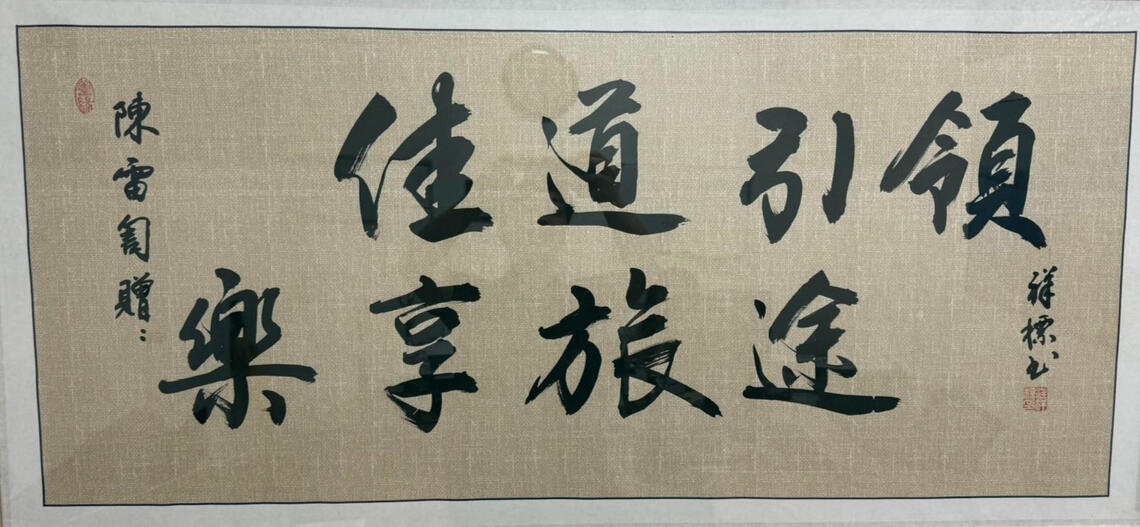 領引道佳
途旅享樂
祥標书
陳雷贈：